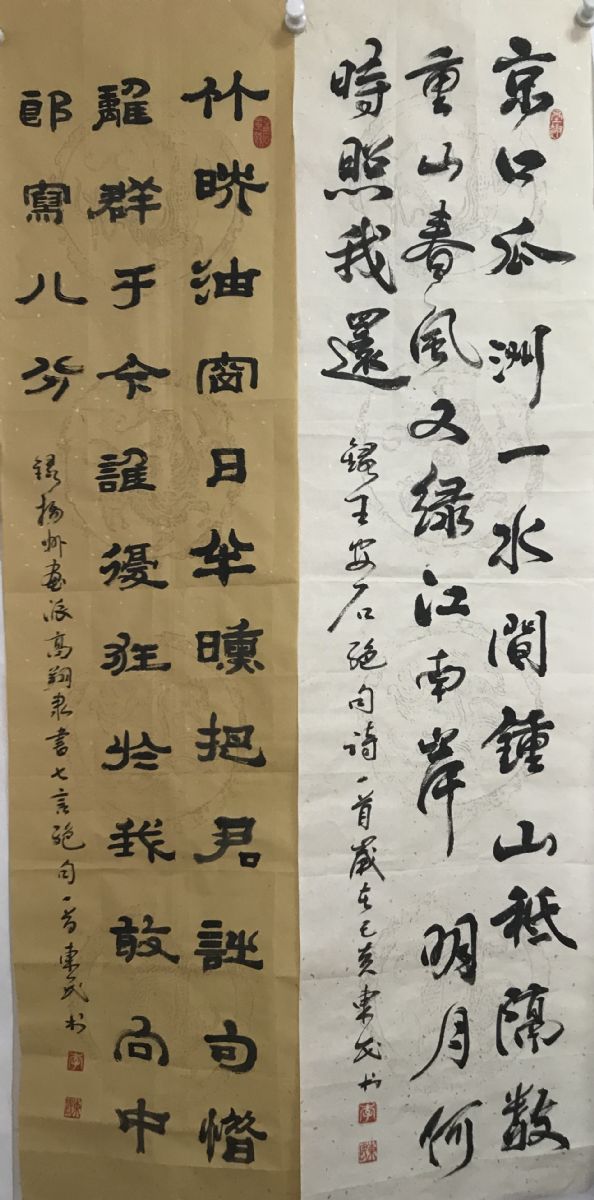 京口瓜洲一水間鍾山秖隔數
重山春風又緑江南岸明月何
時照我還
錄王安石絕句詩一首歲在己亥東民书
竹映油窗日半曛把君詩句惜
離群于今誰復狂於我敢向中
郎寫八分
録揚州画派高翔隶書七言絕句一首東民书